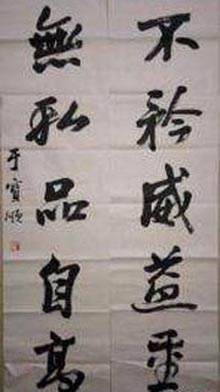 不矜威益重
無私品自高
于寶順